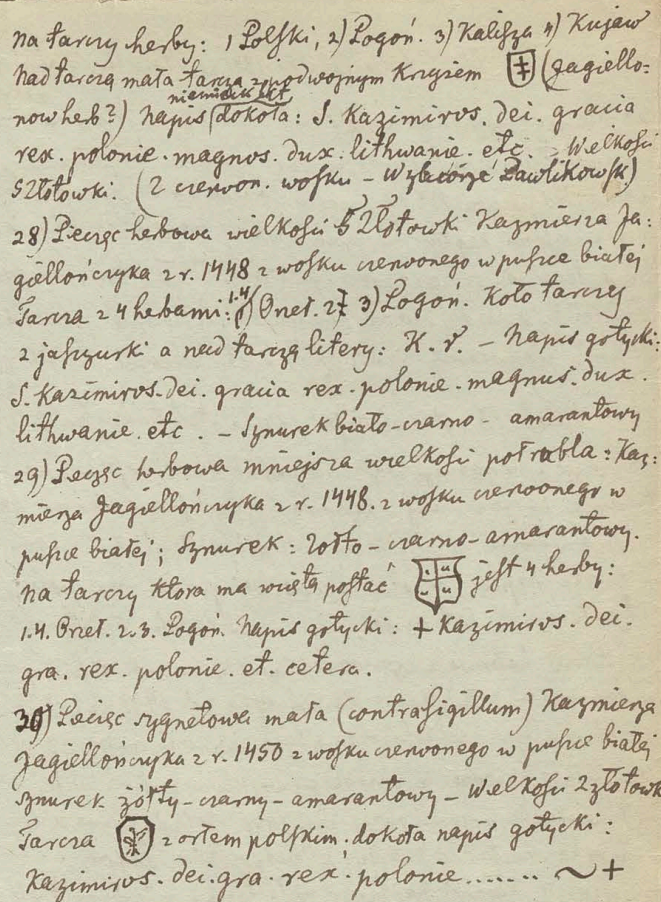 na tarczy herby: 1 Polski, 2) Pogoń. 3) Kalisza 4) Kujaw
nad tarczą mała tarcza z podwojnym Krzyżem (Jagiello:
now herb?) Napis dokoła: S. Kazimirvs. dei. gracia
rex. polonie. magnvs. dux. lithwanie. etc. – Welkości
5 Złotowki. (z czerwon. wosku – Pawlikowsk)
28) Pieczęc herbowa wielkości 5 Złotowki Kazmierza Ja:
giellończyka z r. 1448 z wosku czerwonego w puszce białej
Tarcza z 4 herbami: 1.4) Orzeł. 2 3) Pogoń. Koło tarczy
2 jaszczurki a nad tarczą litery: K. r. – Napis gotycki:
S. Kazimirvs. dei. gracia rex. polonie. magnus. dux.
lithwanie. etc. – Sznurek biało-czarno-amarantowy
29) Pieczęc herbowa mniejsza wielkości półrubla: Kaz:
mierza Jagiellończyka z r. 1448. z wosku czerwonego w
puszce białej; Sznurek: żołto-czarno-amarantowy.
Na tarczy ktora ma wciętą postać jest 4 herby:
1.4. Orzeł. 2.3. Pogoń. Napis gotycki: + Kazimirvs. dei.
gra. rex. polonie. et. cetera.
30) Pieczęc sygnetowa mała (contrasigillum) Kazmierza
Jagiellończyka z r. 1450 z wosku czerwonego w puszce białej
sznurek żółty-czarny-amarantowy – Welkości 2 złotowk
Tarcza z orłem polskim. dokoła napis gotycki:
Kazimirvs. dei. gra. rex. polonie....... ~ +